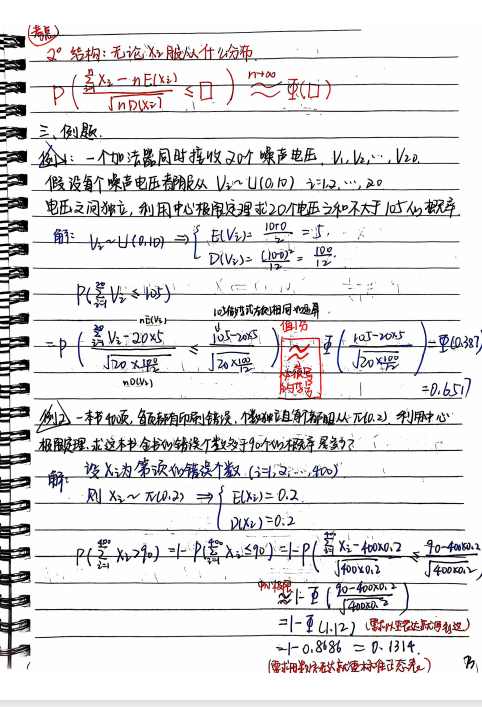 (考点)
2° 结构: 无论 Xi 服从什么分布
P( (∑_{i=1}^{n} Xi - nE(Xi)) / √(nD(Xi)) ≤ □ ) ≈ (n→∞) Φ(□)
三、例题.
例1: 一个加法器同时接收20个噪声电压 V1, V2, …, V20,
假设每个噪声电压都服从 Vi ~ U(0,10) i=1,2,…,20
电压之间独立, 利用中心极限定理求20个电压之和不大于105的概率
解: Vi ~ U(0,10) ⇒ { E(Vi) = (10+0)/2 = 5.
D(Vi) = (10-0)²/12 = 100/12
P(∑_{i=1}^{20} Vi ≤ 105)
nE(Vi)
= P( (∑_{i=1}^{20} Vi - 20×5) / √(20×100/12) ≤ (105-20×5) / √(20×100/12) ) ≈ Φ( (105-20×5) / √(20×100/12) ) = Φ(0.387)
值1分
nD(Vi)
= 0.6517
例2. 一本书400页, 每页都有印刷错误, 个数独立且每个都服从 π(0.2). 利用中心
极限定理, 求这本书全书的错误个数多于90个的概率是多少?
解: 设 Xi 为第i页的错误个数 (i=1,2,…,400)
则 Xi ~ π(0.2) ⇒ { E(Xi) = 0.2
D(Xi) = 0.2
P(∑_{i=1}^{400} Xi > 90) = 1 - P(∑_{i=1}^{400} Xi ≤ 90) = 1 - P( (∑_{i=1}^{400} Xi - 400×0.2) / √(400×0.2) ≤ (90-400×0.2) / √(400×0.2)
中心极限 ≈ 1 - Φ( (90-400×0.2) / √(400×0.2) )
= 1 - Φ(1.12)
= 1 - 0.8686 = 0.1314.